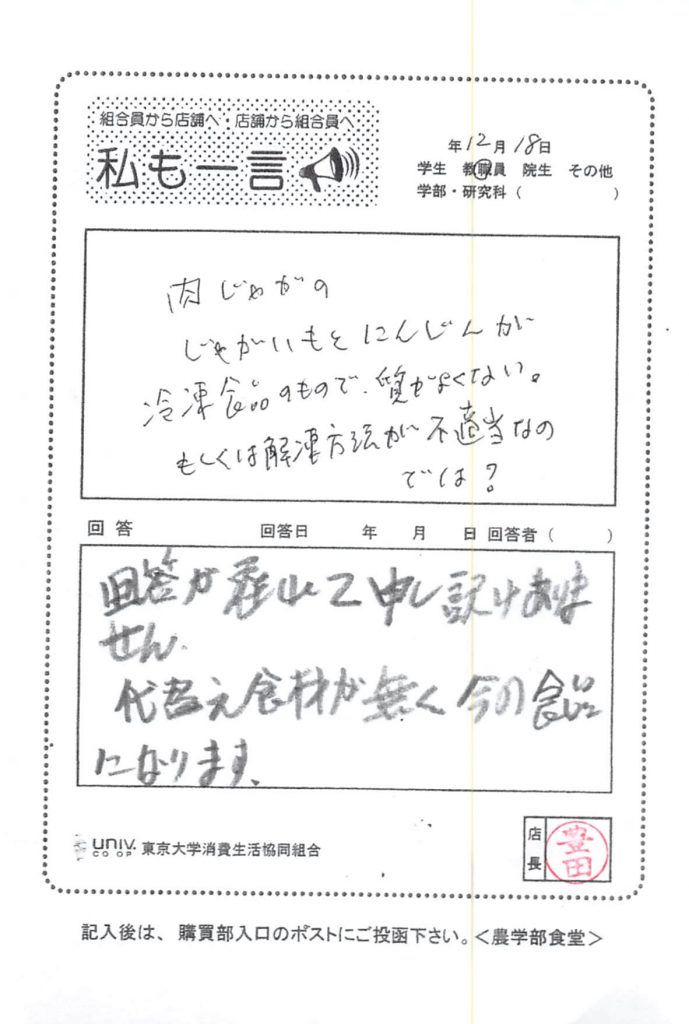 組合員から店舗へ・店舗から組合員へ
私も一言
年12月18日
学生 教職員 院生 その他
学部・研究科（ ）
肉じゃがの
じゃがいもとにんじんが
冷凍食品のもので、質がよくない。
もしくは解凍方法が不適当なの
では？
回答 回答日 年 月 日 回答者（ ）
回答が遅れて申し訳けありま
せん。
代替え食材が無く今の食品
になります。
UNIV. CO-OP 東京大学消費生活協同組合
店長 豊田
記入後は、購買部入口のポストにご投函下さい。＜農学部食堂＞